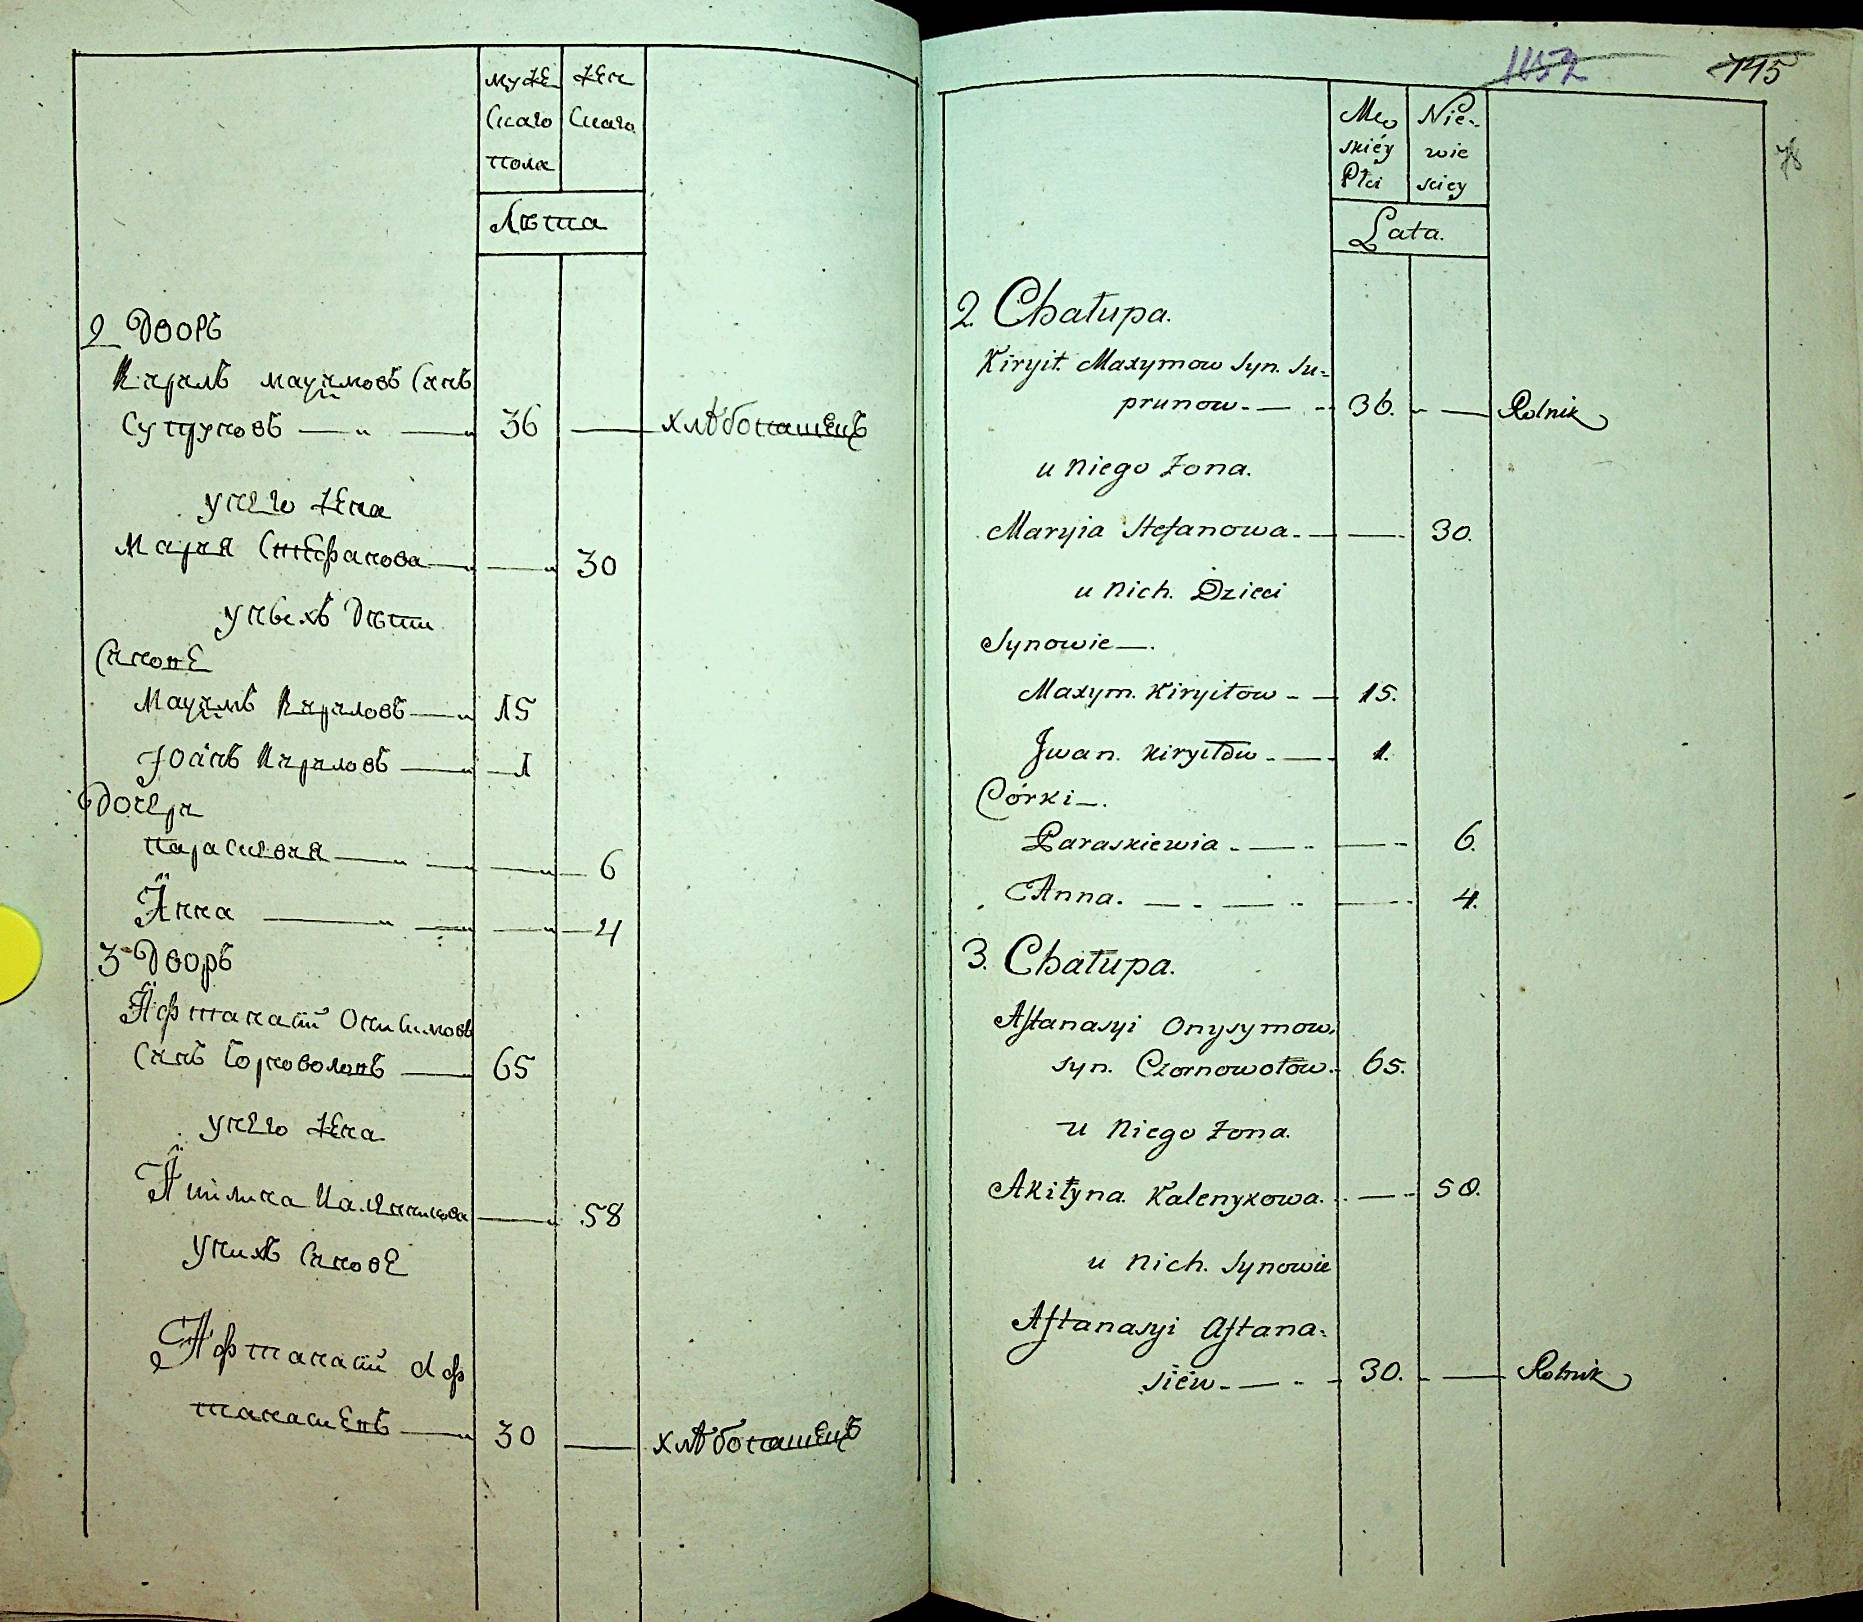 муже
скаго
пола
жен
скаго
Лѣта
2 Дворъ
Кирилъ Маѯимовъ Синъ
Супруновъ — „ — 36 — хлѣбопашецъ
у него жена
Мария Стефанова — — 30
у нихъ Дѣти
Синове
Маѯимъ Кириловъ — 15
Иоанъ Кириловъ — 1
Дочери
Параскевия — — 6
Анна — — 4
3 Дворъ
Афтанасій Онисимовъ
Синъ Чорноволовъ — 65
у него жена
Акилина Каленикова — 58
у нихъ Синове
Афтанасій Аф
танасиевъ — 30 — хлѣбопашецъ
1152 145
78
Męs
skiéy
Płci
Nie-
wie
sciey
Lata.
2. Chałupa.
Kiryił. Maxymow Syn. Su-
prunow. — - 36. - — Rolnik
u Niego Żona.
Maryia Stefanowa. — — 30.
u Nich. Dzieci
Synowie —.
Maxym. Kiryiłow - — 15.
Jwan. Kiryiłow - — 1.
Córki —.
Paraskiewia - — — 6.
Anna. — - — — 4.
3. Chałupa.
Aftanasyi Onysymow.
syn. Czornowołow. 65.
u Niego Żona.
Akiłyna. Kalenykowa. - — - 58.
u Nich. Synowie
Aftanasyi Aftana-
siéw. — - 30. - — Rolnik